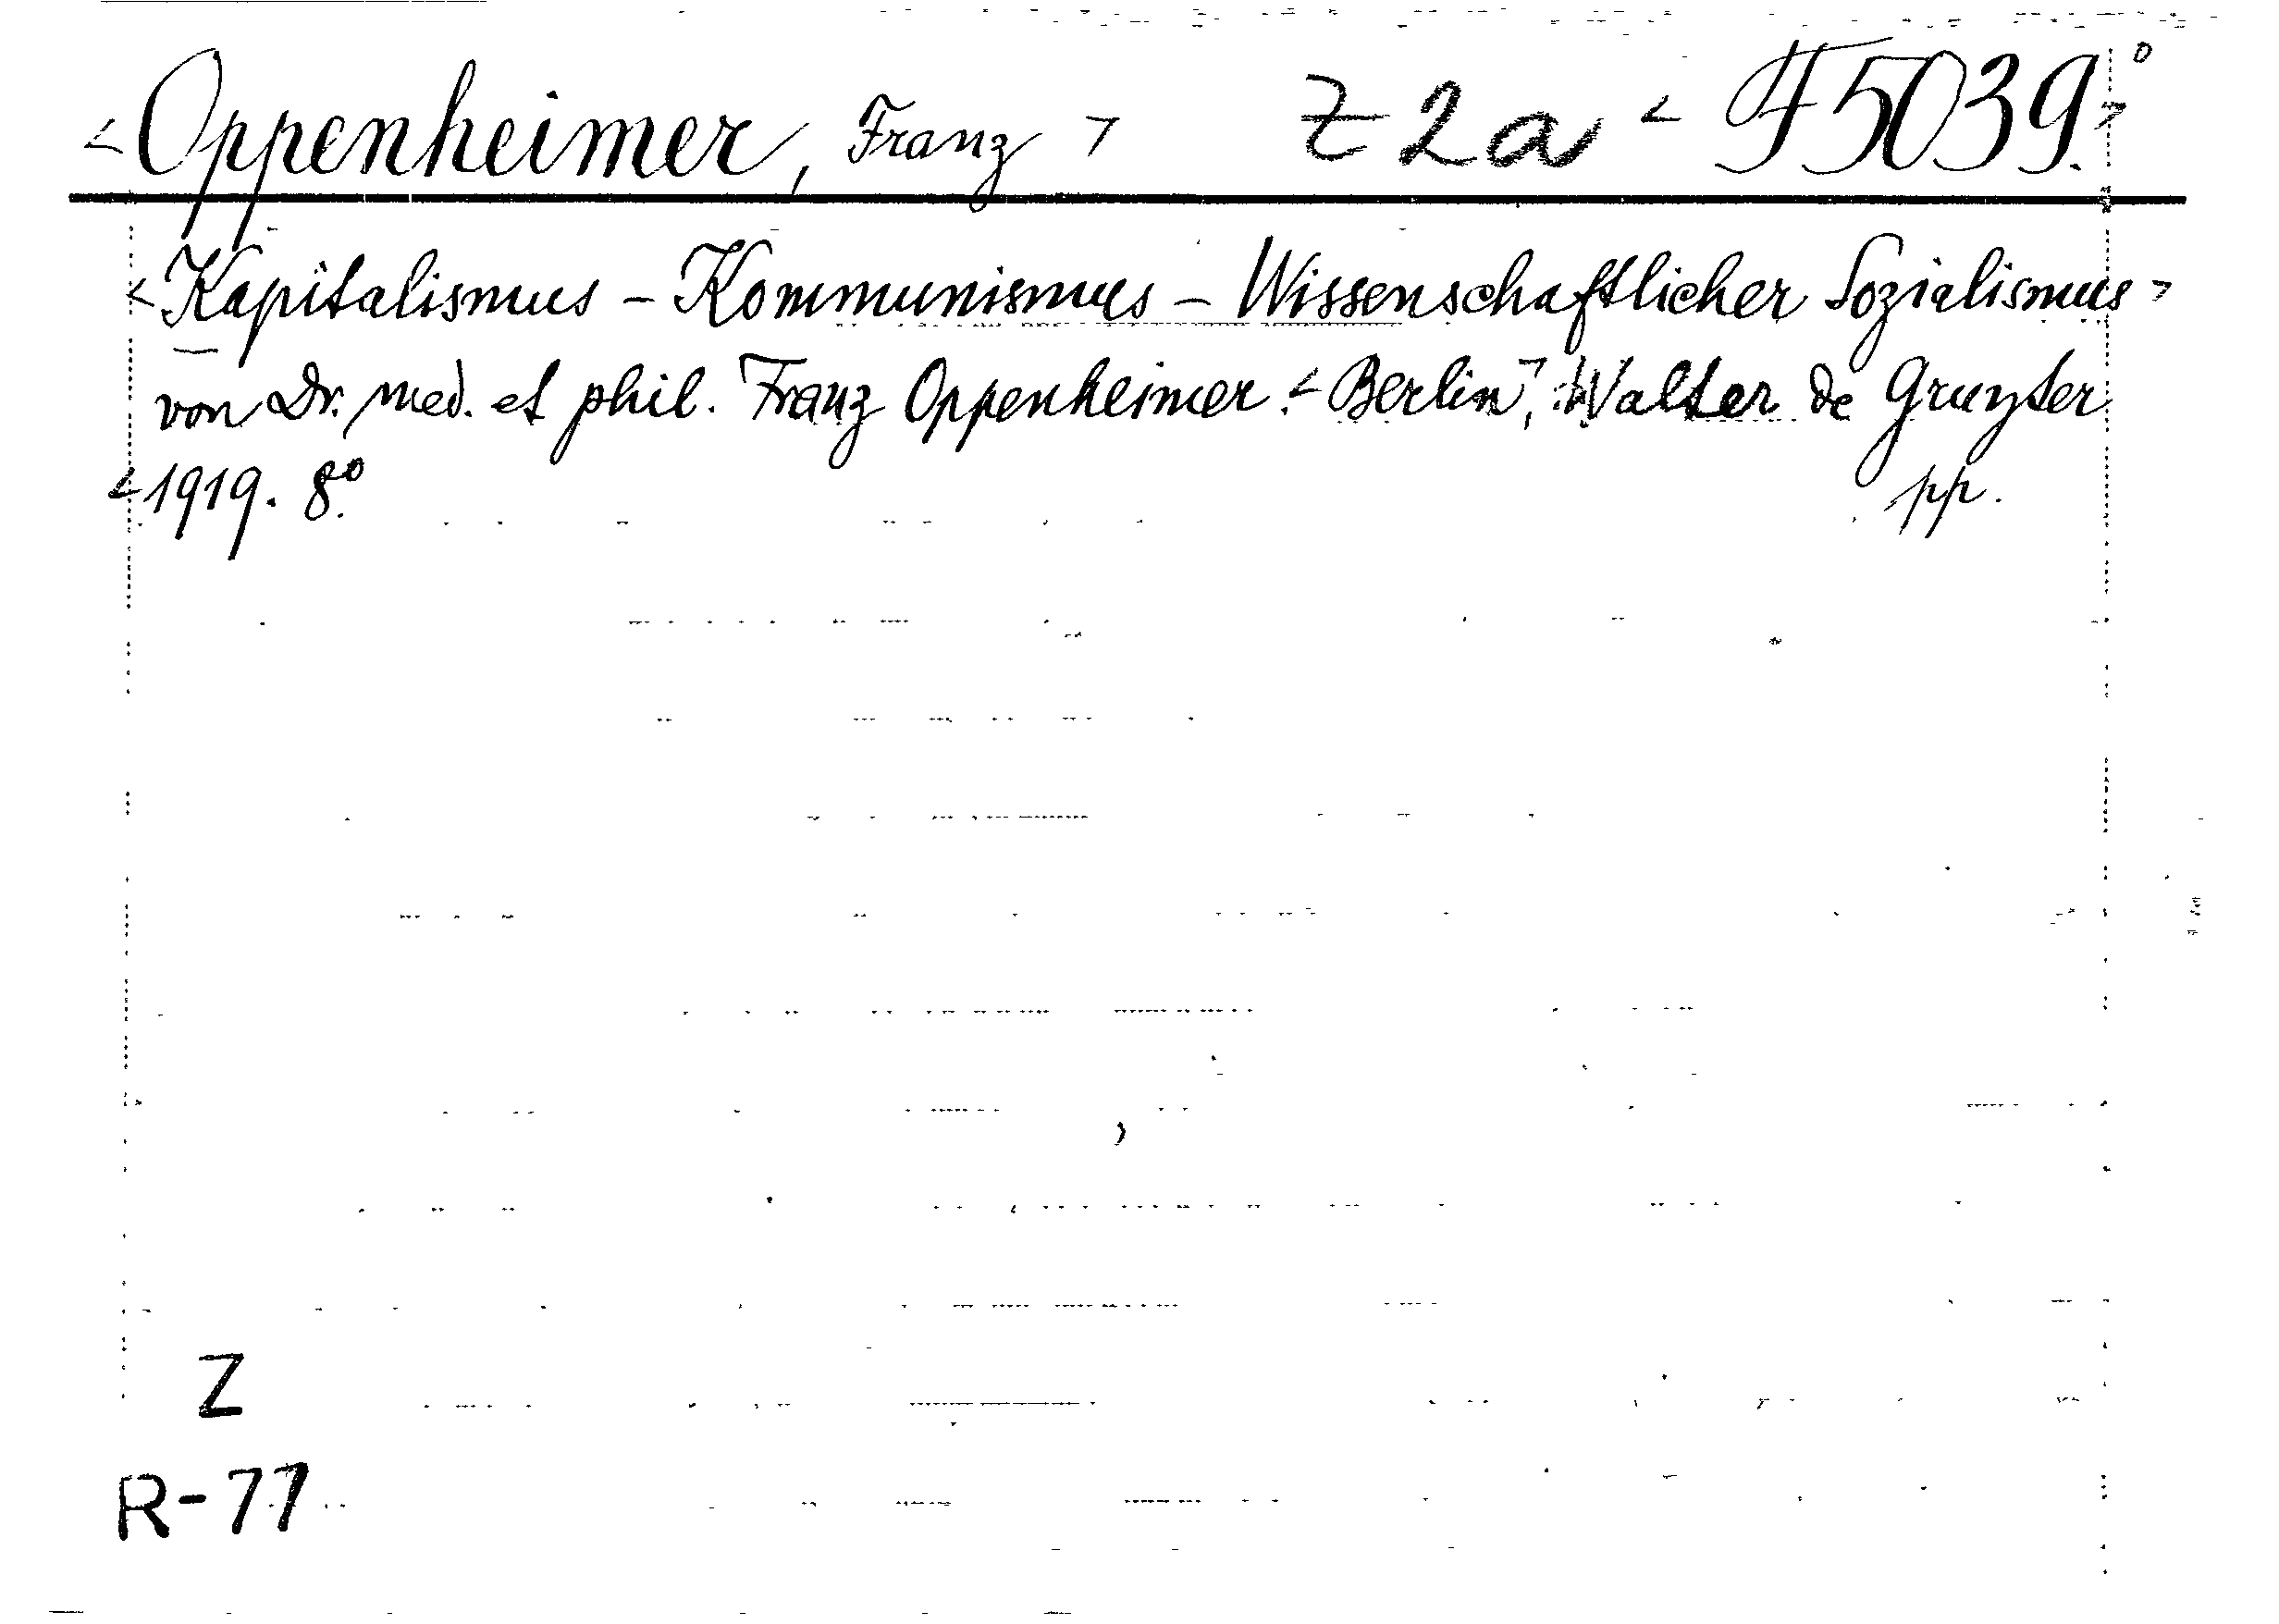 <Oppenheimer, Franz> Z 2a <F5039.°>
<Kapitalismus - Kommunismus - Wissenschaftlicher Sozialismus>
von Dr. med. et phil. Franz Oppenheimer. <Berlin>, Walter de Gruyter
<1919. 8°. pp.
Z
R-77